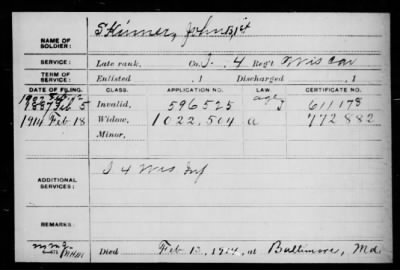 NAME OF SOLDIER: Skinner, John B, 1st
SERVICE: Late rank, Co. I. 4 Reg't Wis Cav
TERM OF SERVICE: Enlisted , 1 Discharged , 1
DATE OF FILING. CLASS. APPLICATION NO. LAW CERTIFICATE NO.
1887 Feb 5 Invalid, 596525 J 611178
age
1914 Feb 18 Widow, 1022,504 a 772882
Minor,
ADDITIONAL SERVICES: I 4 Wis Inf
REMARKS:
Died Feb 1914, at Baltimore, Md.